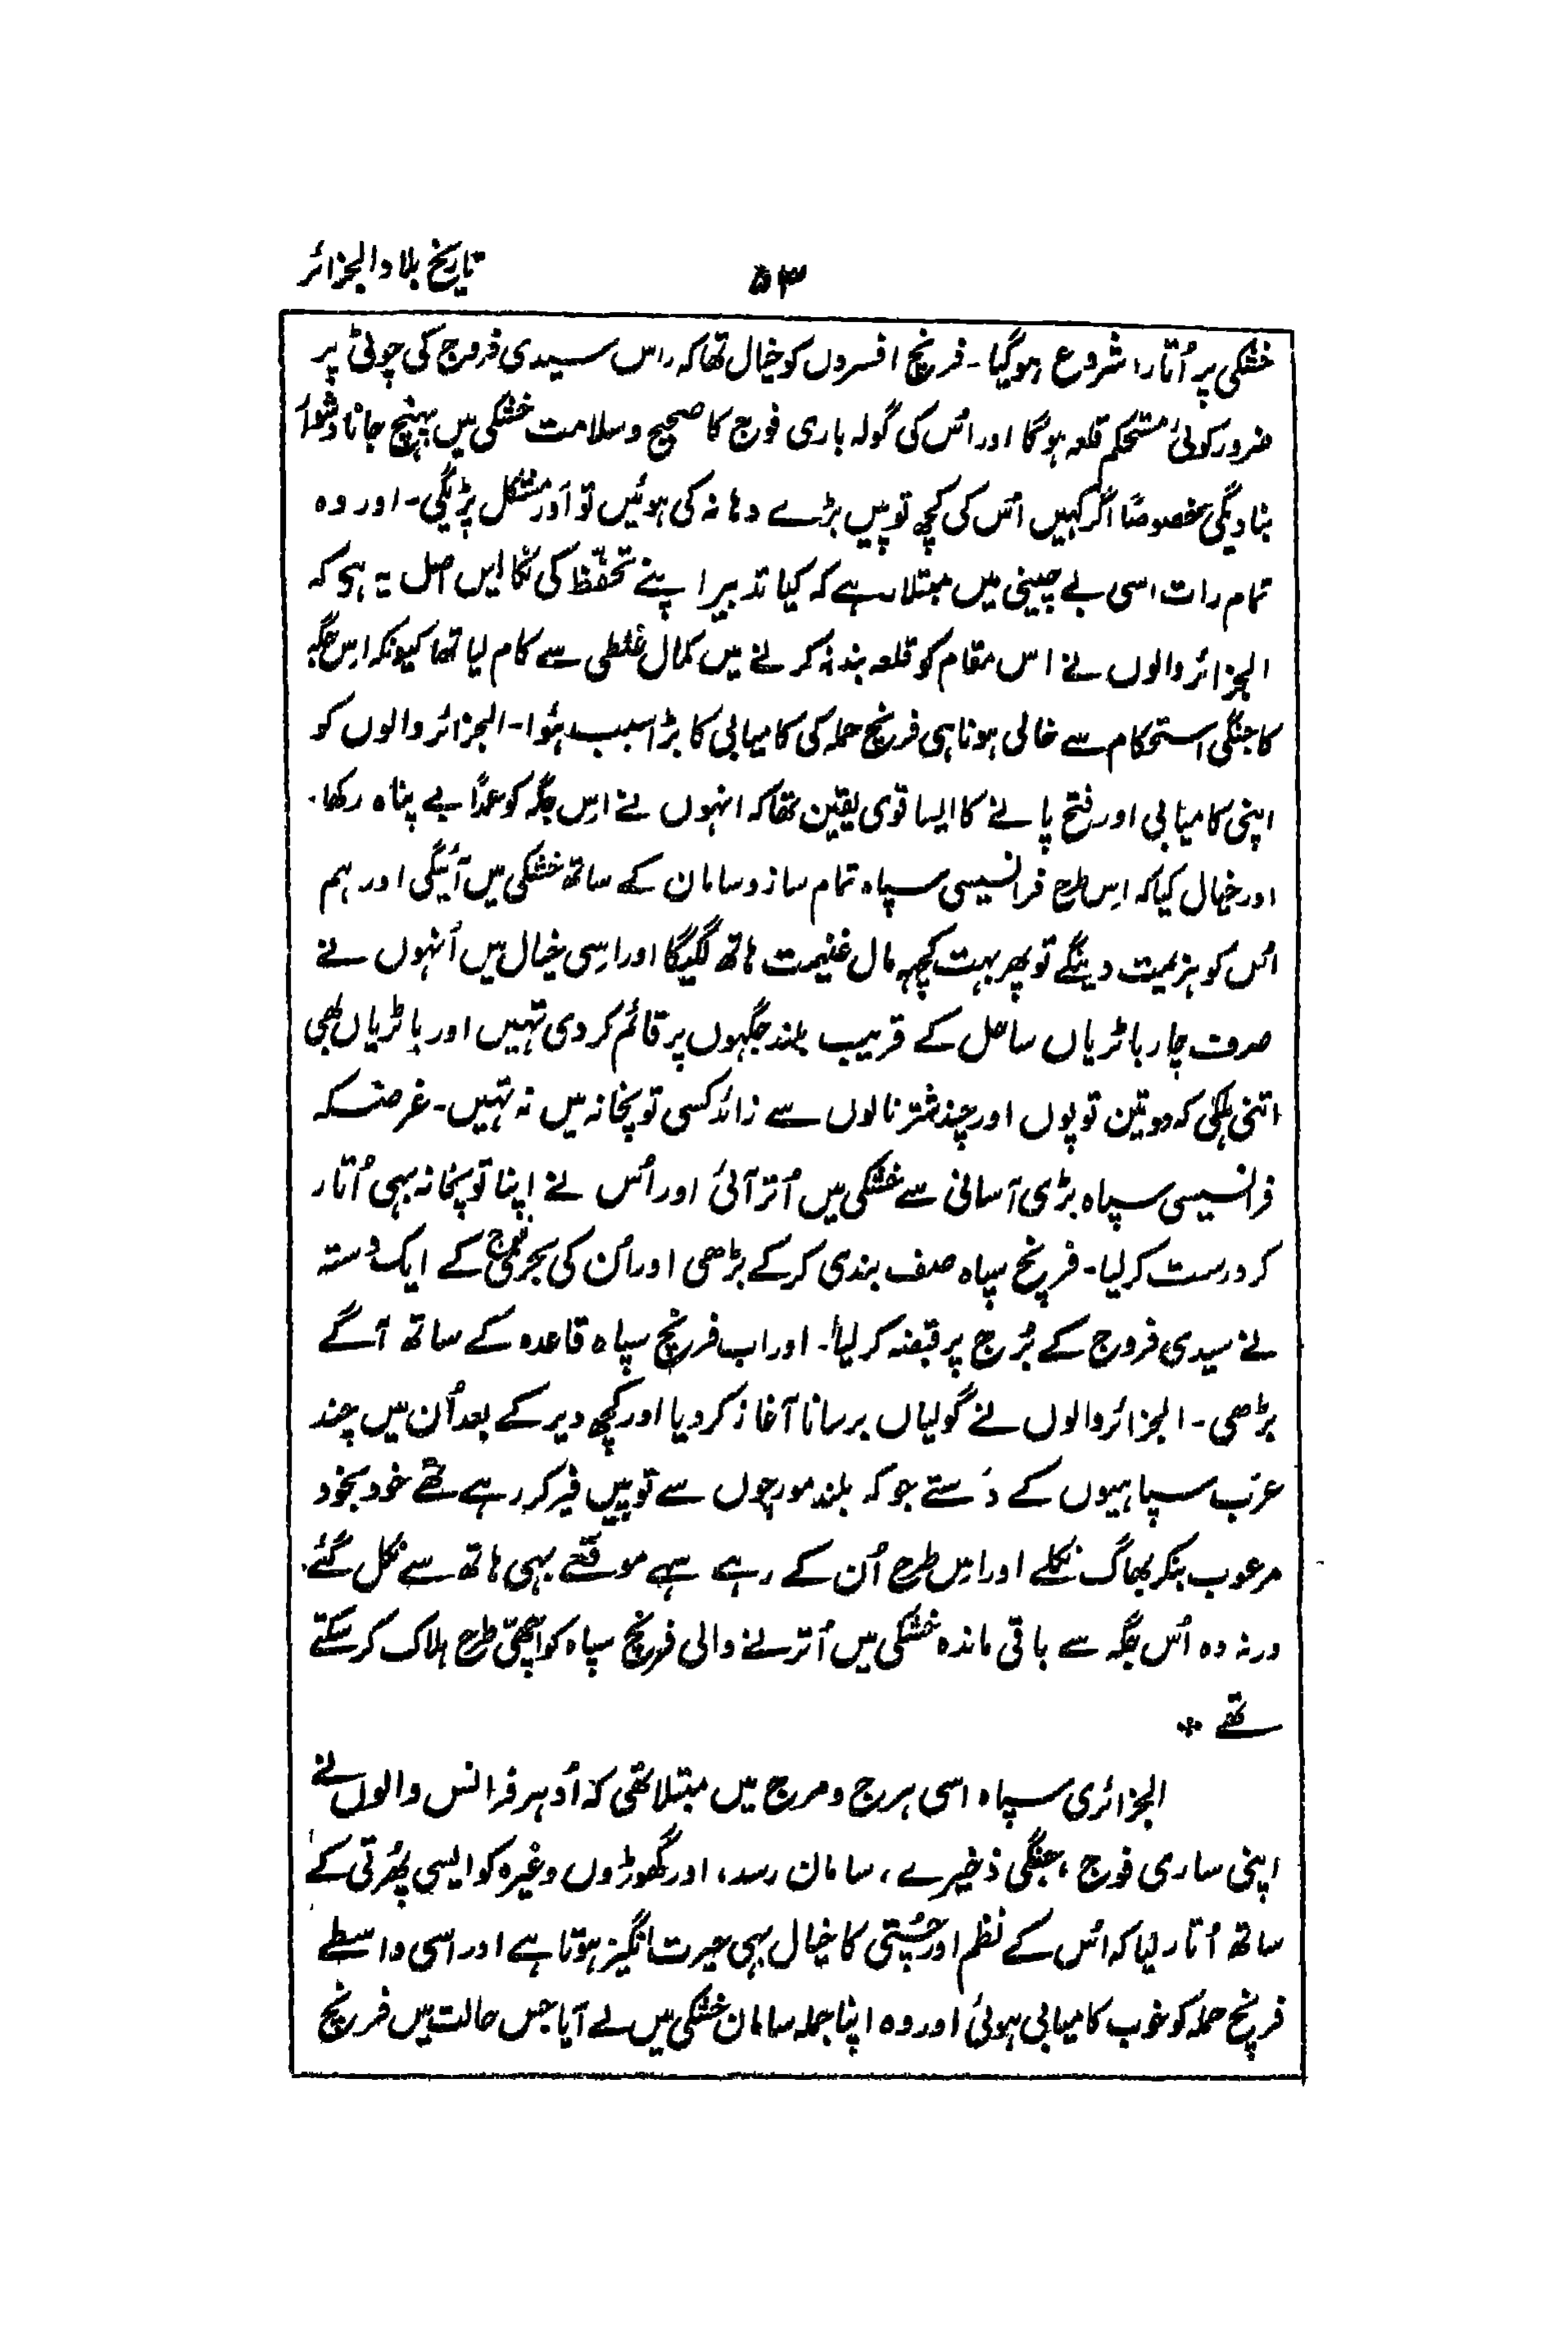 تاریخ بلاد الجزائر
۵۳
خشکی پر اُتارا شروع ہوگیا۔ فرنچ افسروں کو خیال تھا کہ راس سیدی فروج کی چوٹی پر
ضرور کوئی مستحکم قلعہ ہوگا اور اُس کی گولہ باری فوج کا صحیح و سلامت خشکی میں پہنچ جانا دشوار
بنادیگی خصوصًا اگر کہیں اُس کی کچھ توپیں بڑے دہانہ کی ہوئیں تو اَور مشکل پڑیگی۔ اور وہ
تمام رات اسی بے چینی میں مبتلا رہے کہ کیا تدبیر اپنے تحفّظ کی نکالیں اصل یہ ہی کہ
الجزائر والوں نے اس مقام کو قلعہ بند نہ کرنے میں کمال غلطی سے کام لیا تھا کیونکہ اِس جگہ
کا جنگی استحکام سے خالی ہونا ہی فرنچ حملہ کی کامیابی کا بڑا سبب ہُوا۔ الجزائر والوں کو
اپنی کامیابی اور فتح پانے کا ایسا قوی یقین تھا کہ انہوں نے اِس جگہ کو عمدًا بے پناہ رکھا۔
اور خیال کیا کہ اِس طرح فرانسیسی سپاہ تمام ساز و سامان کے ساتھ خشکی میں آئیگی اور ہم
اُس کو ہزیمت دینگے تو پھر بہت کچھ مال غنیمت ہاتھ لگیگا اور اِسی خیال میں اُنہوں نے
صرف چار باٹریاں ساحل کے قریب بلند جگہوں پر قائم کر دی تہیں اور باٹریاں بھی
اتنی ہلکی کہ دو تین توپوں اور چند شتر نالوں سے زائد کسی توپخانہ میں نہ تہیں۔ غرضکہ
فرانسیسی سپاہ بڑی آسانی سے خشکی میں اُتر آئی اور اُس نے اپنا توپخانہ بہی اُتار
کر درست کر لیا۔ فرنچ سپاہ صف بندی کرکے بڑھی اور اُن کی بحری فوج کے ایک دستہ
نے سیدی فروج کے بُرج پر قبضہ کر لیا۔ اور اب فرنچ سپاہ قاعدہ کے ساتھ آگے
بڑھی۔ الجزائر والوں نے گولیاں برسانا آغاز کر دیا اور کچھ دیر کے بعد اُن میں چند
عرب سپاہیوں کے دَستے جو کہ بلند مورچوں سے توپیں فیر کر رہے تھے خود بخود
مرعوب بنکر بھاگ نکلے اور اِس طرح اُن کے رہے سہے موقعے بہی ہاتھ سے نکل گئے۔
ورنہ وہ اُس جگہ سے باقی ماندہ خشکی میں اُترنے والی فرنچ سپاہ کو اچھی طرح ہلاک کر سکتے
تھے *
الجزائری سپاہ اسی ہرج و مرج میں مبتلا تھی کہ اُدہر فرانس والوں نے
اپنی ساری فوج، جنگی ذخیرے، سامان رسد، اور گھوڑوں وغیرہ کو ایسی پھُرتی کے
ساتھ اُتار لیا کہ اُس کے نظم اور چُستی کا خیال بہی حیرت انگیز ہوتا ہے اور اسی واسطے
فرنچ حملہ کو خوب کامیابی ہوئی اور وہ اپنا جملہ سامان خشکی میں لے آیا جس حالت میں فرنچ